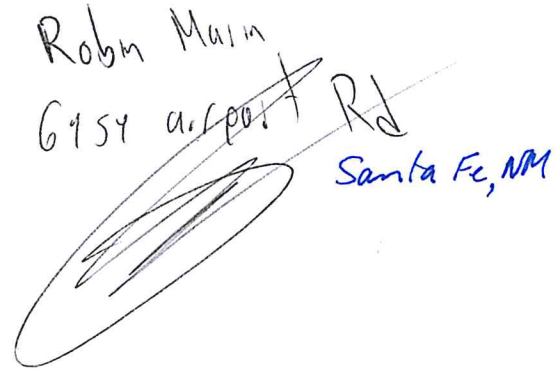 Robin Marin
6454 airport Rd
Santa Fe, NM